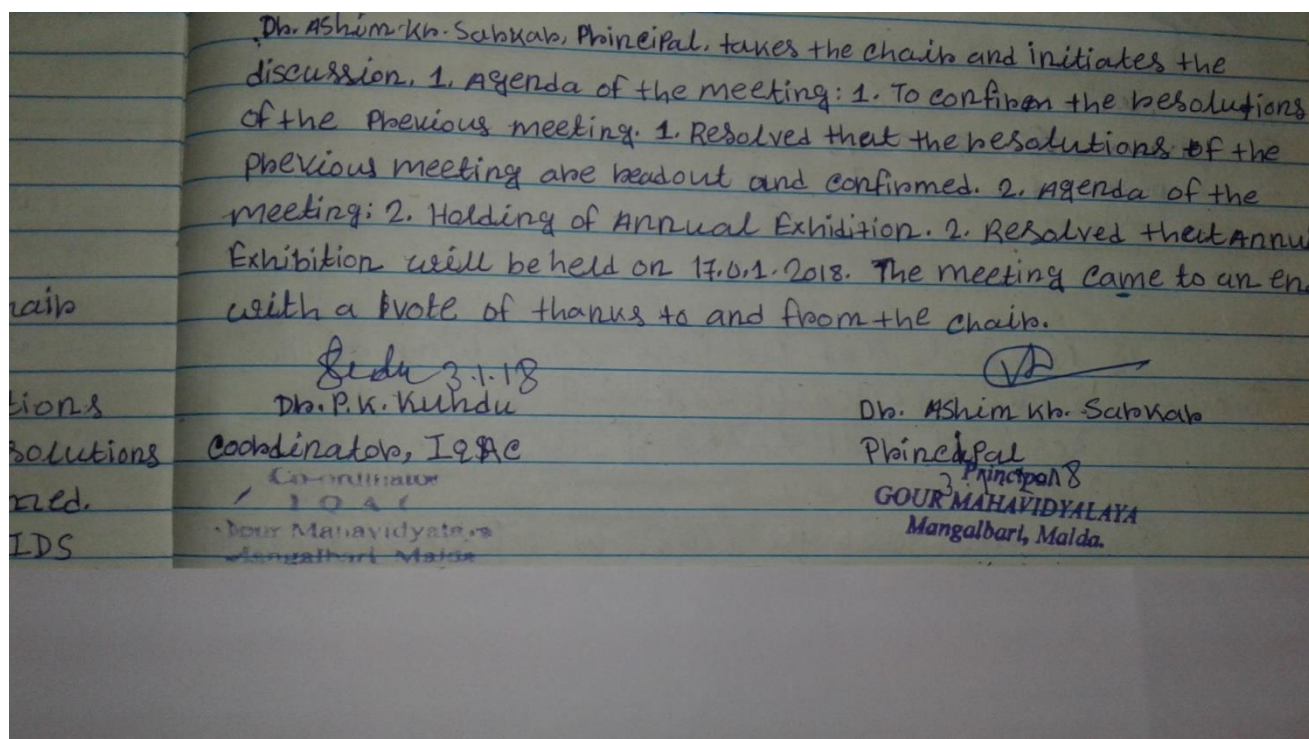 Dr. Ashim Kr. Sarkar, Principal, takes the chair and initiates the
discussion. 1. Agenda of the meeting: 1. To confirm the resolutions
of the Previous meeting. 1. Resolved that the resolutions of the
previous meeting are readout and confirmed. 2. Agenda of the
meeting: 2. Holding of Annual Exhidition. 2. Resolved that Annu
Exhibition will be held on 17.0.1.2018. The meeting came to an en
with a vote of thanks to and from the chair.
hair
3.1.18
Dr. P.K. Kundu
Dr. Ashim Kr. Sarkar
tions
Coordinator, IQAC
Principal
solutions
Co-ordinator
I Q A C
Gour Mahavidyalaya
Mangalbari Malda
Principal
GOUR MAHAVIDYALAYA
Mangalbari, Malda.
med.
IDS